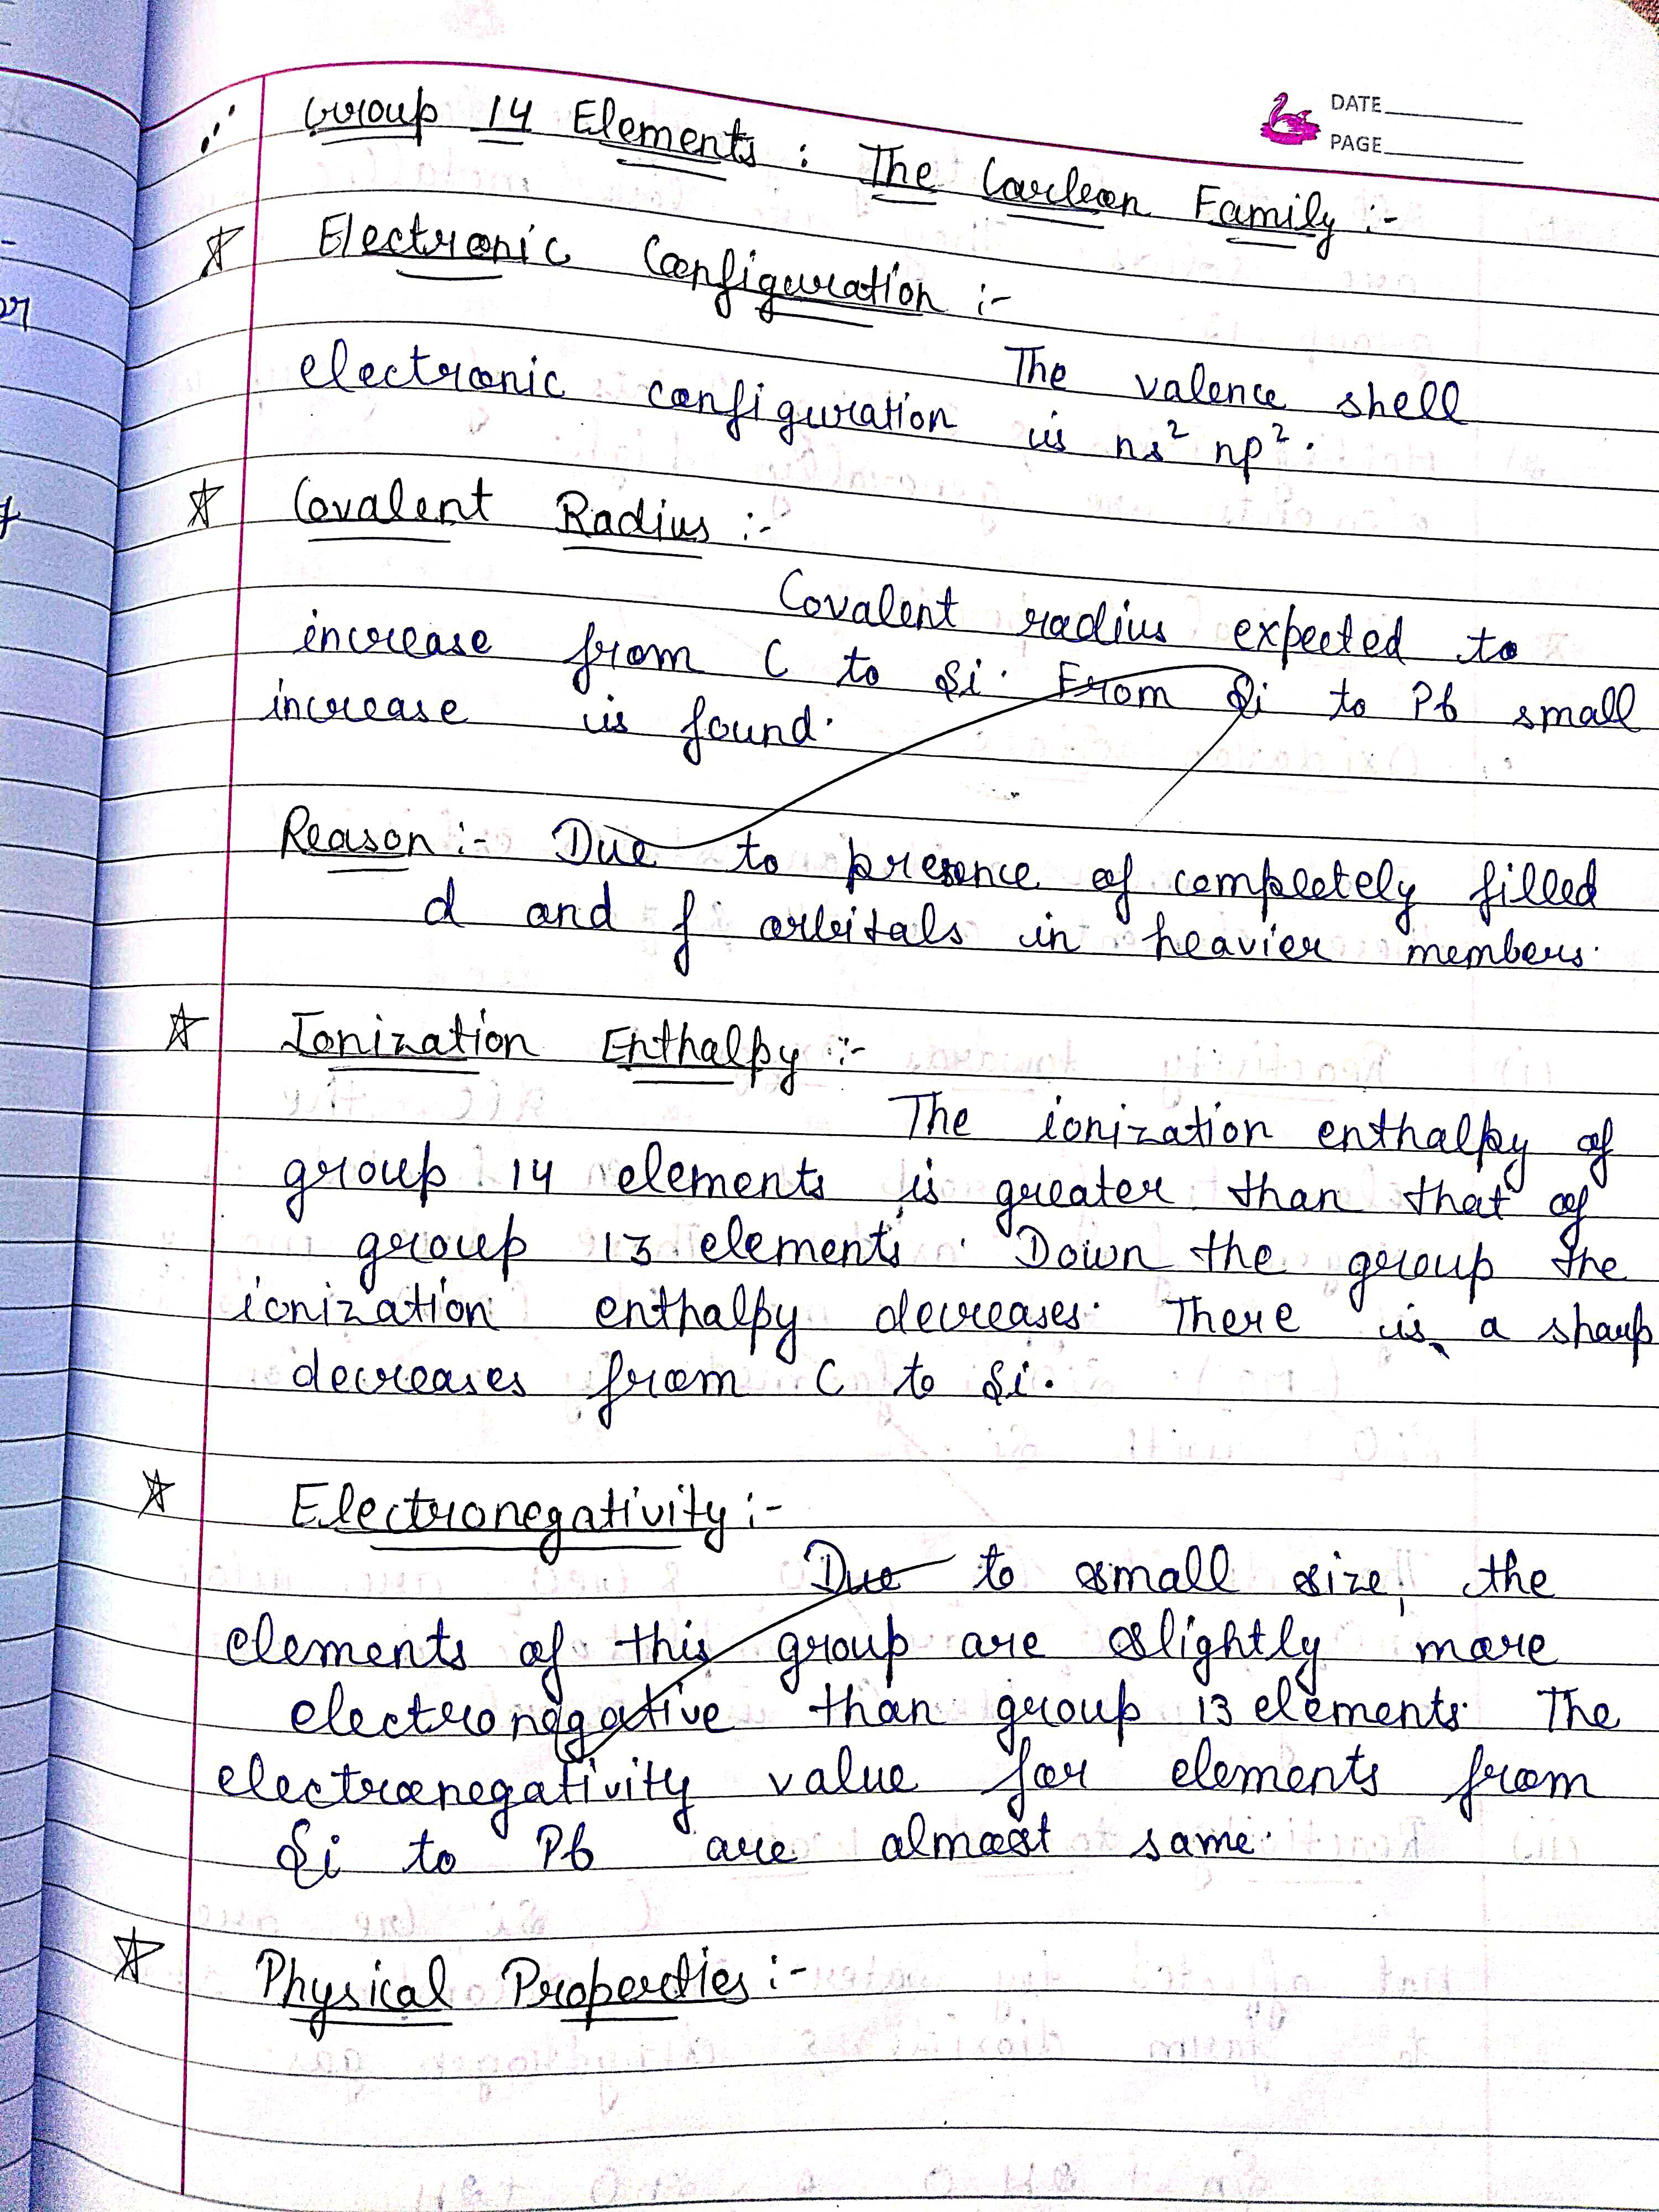 DATE
PAGE
Group 14 Elements : The Carbon Family :-
Electronic Configuration :-
The valence shell
electronic configuration is ns² np².
Covalent Radius :-
Covalent radius expected to
increase from C to Si. From Si to Pb small
increase is found.
Reason :- Due to presence of completely filled
d and f orbitals in heavier members.
Ionization Enthalpy :-
The ionization enthalpy of
group 14 elements is greater than that of
group 13 elements. Down the group the
ionization enthalpy decreases. There is a sharp
decreases from C to Si.
Electronegativity :-
Due to small size, the
elements of this group are slightly more
electronegative than group 13 elements. The
electronegativity value for elements from
Si to Pb are almost same.
Physical Properties :-